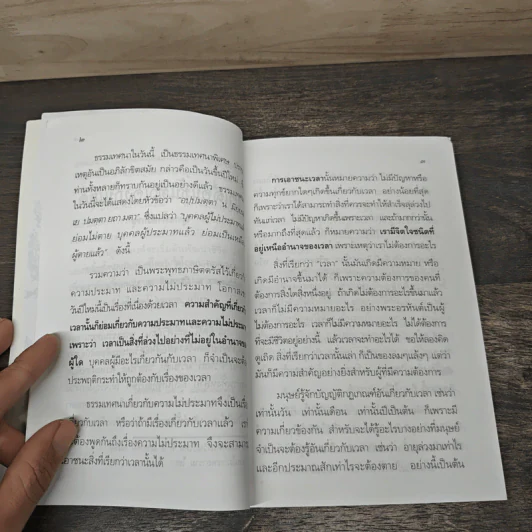 ๒
ธรรมเทศนาในวันนี้ เป็นธรรมเทศนาพิเศษ
เหตุอันเป็นอภิลักขิตสมัย กล่าวคือเป็นวันขึ้นปีใหม่
ท่านทั้งหลายก็ทราบกันอยู่เป็นอย่างดีแล้ว ธรรมเทศนา
ในวันนี้จะได้แสดงโดยหัวข้อว่า “อปฺปมตฺตา น มียนฺติ
เย ปมตฺตา ยถา มตา” ซึ่งแปลว่า “บุคคลผู้ไม่ประมาท
ย่อมไม่ตาย บุคคลผู้ประมาทแล้ว ย่อมเป็นเหมือน
ผู้ตายแล้ว” ดังนี้
รวมความว่า เป็นพระพุทธภาษิตตรัสไว้เกี่ยวกับ
ความประมาท และความไม่ประมาท โอกาส
วันปีใหม่นี้เป็นเรื่องที่เนื่องด้วยเวลา ความสำคัญที่เกี่ยวกับ
เวลานั้นก็ย่อมเกี่ยวกับความประมาทและความไม่ประมาท
เพราะว่า เวลาเป็นสิ่งที่ล่วงไปอย่างที่ไม่อยู่ในอำนาจของ
ผู้ใด บุคคลผู้มีอะไรเกี่ยวกันกับเวลา ก็จำเป็นจะต้อง
ประพฤติกระทำให้ถูกต้องกับเรื่องของเวลา
ธรรมเทศนาเกี่ยวกับความไม่ประมาทจึงเป็นเรื่อง
เกี่ยวกับเวลา หรือว่าถ้ามีเรื่องเกี่ยวกับเวลาแล้ว
ต้องพูดกันถึงเรื่องความไม่ประมาท จึงจะสามารถ
เอาชนะสิ่งที่เรียกว่าเวลานั้นได้
๓
การเอาชนะเวลานั้นหมายความว่า ไม่มีปัญหาหรือ
ความทุกข์ยากใดๆเกิดขึ้นเกี่ยวกับเวลา อย่างน้อยที่สุด
ก็เพราะว่าเราได้สามารถทำสิ่งที่ควรจะทำให้สำเร็จลุล่วงไป
ทันแก่เวลา ไม่มีปัญหาเกิดขึ้นเพราะเวลา และถ้ามากกว่านั้น
หรือมากถึงที่สุดแล้ว ก็หมายความว่า เรามีจิตใจชนิดที่
อยู่เหนืออำนาจของเวลา เพราะเหตุว่าเราไม่ต้องการอะไร
สิ่งที่เรียกว่า “เวลา” นั้นมันเกิดมีความหมาย หรือ
เกิดมีอำนาจขึ้นมาได้ ก็เพราะความต้องการของคนที่
ต้องการสิ่งใดสิ่งหนึ่งอยู่ ถ้าเกิดไม่ต้องการอะไรขึ้นมาแล้ว
เวลาก็ไม่มีความหมายอะไร อย่างพระอรหันต์เป็นผู้
ไม่ต้องการอะไร เวลาก็ไม่มีความหมายอะไร ไม่ได้ต้องการ
ที่จะมีชีวิตอยู่อย่างนี้ แล้วเวลาจะทำอะไรได้ ขอให้ลองคิด
ดูเถิด สิ่งที่เรียกว่าเวลานั้นเล่า ก็เป็นของลมๆแล้งๆ แต่ว่า
มันก็มีความสำคัญอย่างยิ่งสำหรับผู้ที่มีความต้องการ
มนุษย์รู้จักบัญญัติกฎเกณฑ์อันเกี่ยวกับเวลา เช่นว่า
เท่านั้นวัน เท่านั้นเดือน เท่านั้นปีเป็นต้น ก็เพราะมี
ความเกี่ยวข้องกัน สำหรับจะได้รู้อะไรบางอย่างที่มนุษย์
จำเป็นจะต้องรู้อันเกี่ยวกับเวลา เช่นว่า อายุล่วงมาเท่าไร
และอีกประมาณสักเท่าไรจะต้องตาย อย่างนี้เป็นต้น